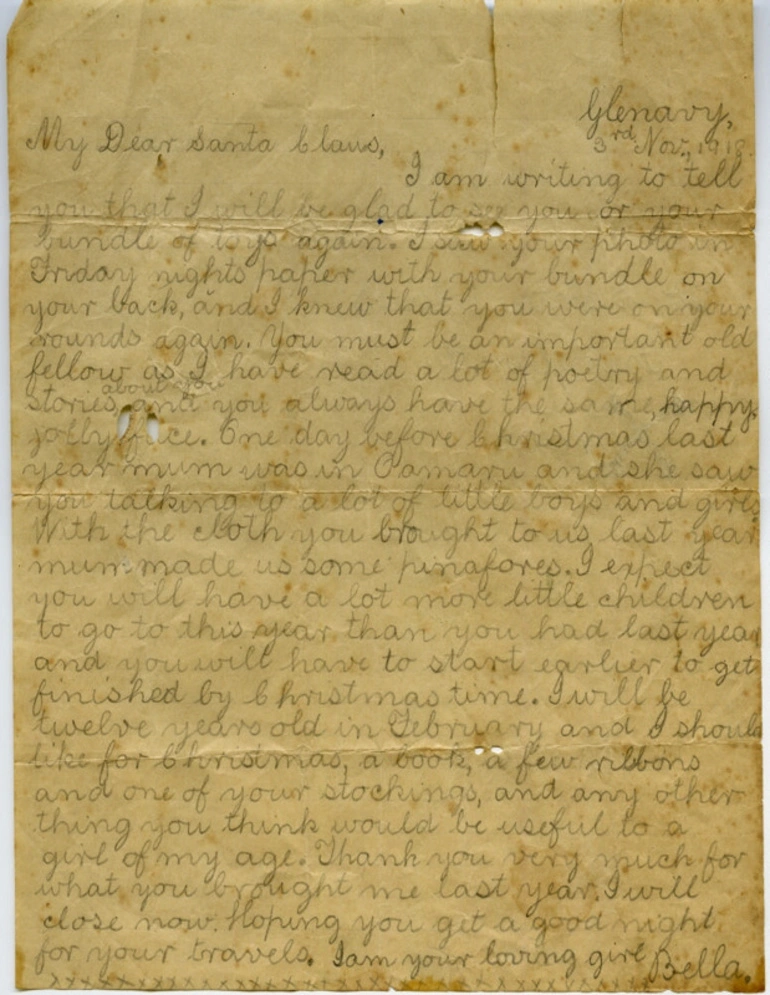 Glenavy,
My Dear Santa Claus,
3rd Nov., 1918
I am writing to tell
you that I will be glad to see you or your
bundle of toys again. I saw your photo in
Friday nights paper with your bundle on
your back, and I knew that you were on your
rounds again. You must be an important old
fellow as I have read a lot of poetry and
about you
stories, and you always have the same, happy,
jolly face. One day before Christmas last
year mum was in Oamaru and she saw
you talking to a lot of little boys and girls
With the cloth you brought to us last year
mum made us some pinafores. I expect
you will have a lot more little children
to go to this year than you had last year
and you will have to start earlier to get
finished by Christmas time. I will be
twelve years old in February and I should
like for Christmas, a book, a few ribbons
and one of your stockings, and any other
thing you think would be useful to a
girl of my age. Thank you very much for
what you brought me last year. I will
close now. Hoping you get a good night
for your travels. I am your loving girl Bella.
xxxxxxxxxxxxxxxxxxxxxxxxxxx